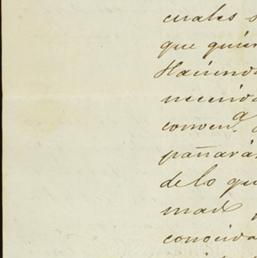 cuales s
que quier
Haciend
mecind
conven.ᵃ
pañará
de lo qu
mad
conocid